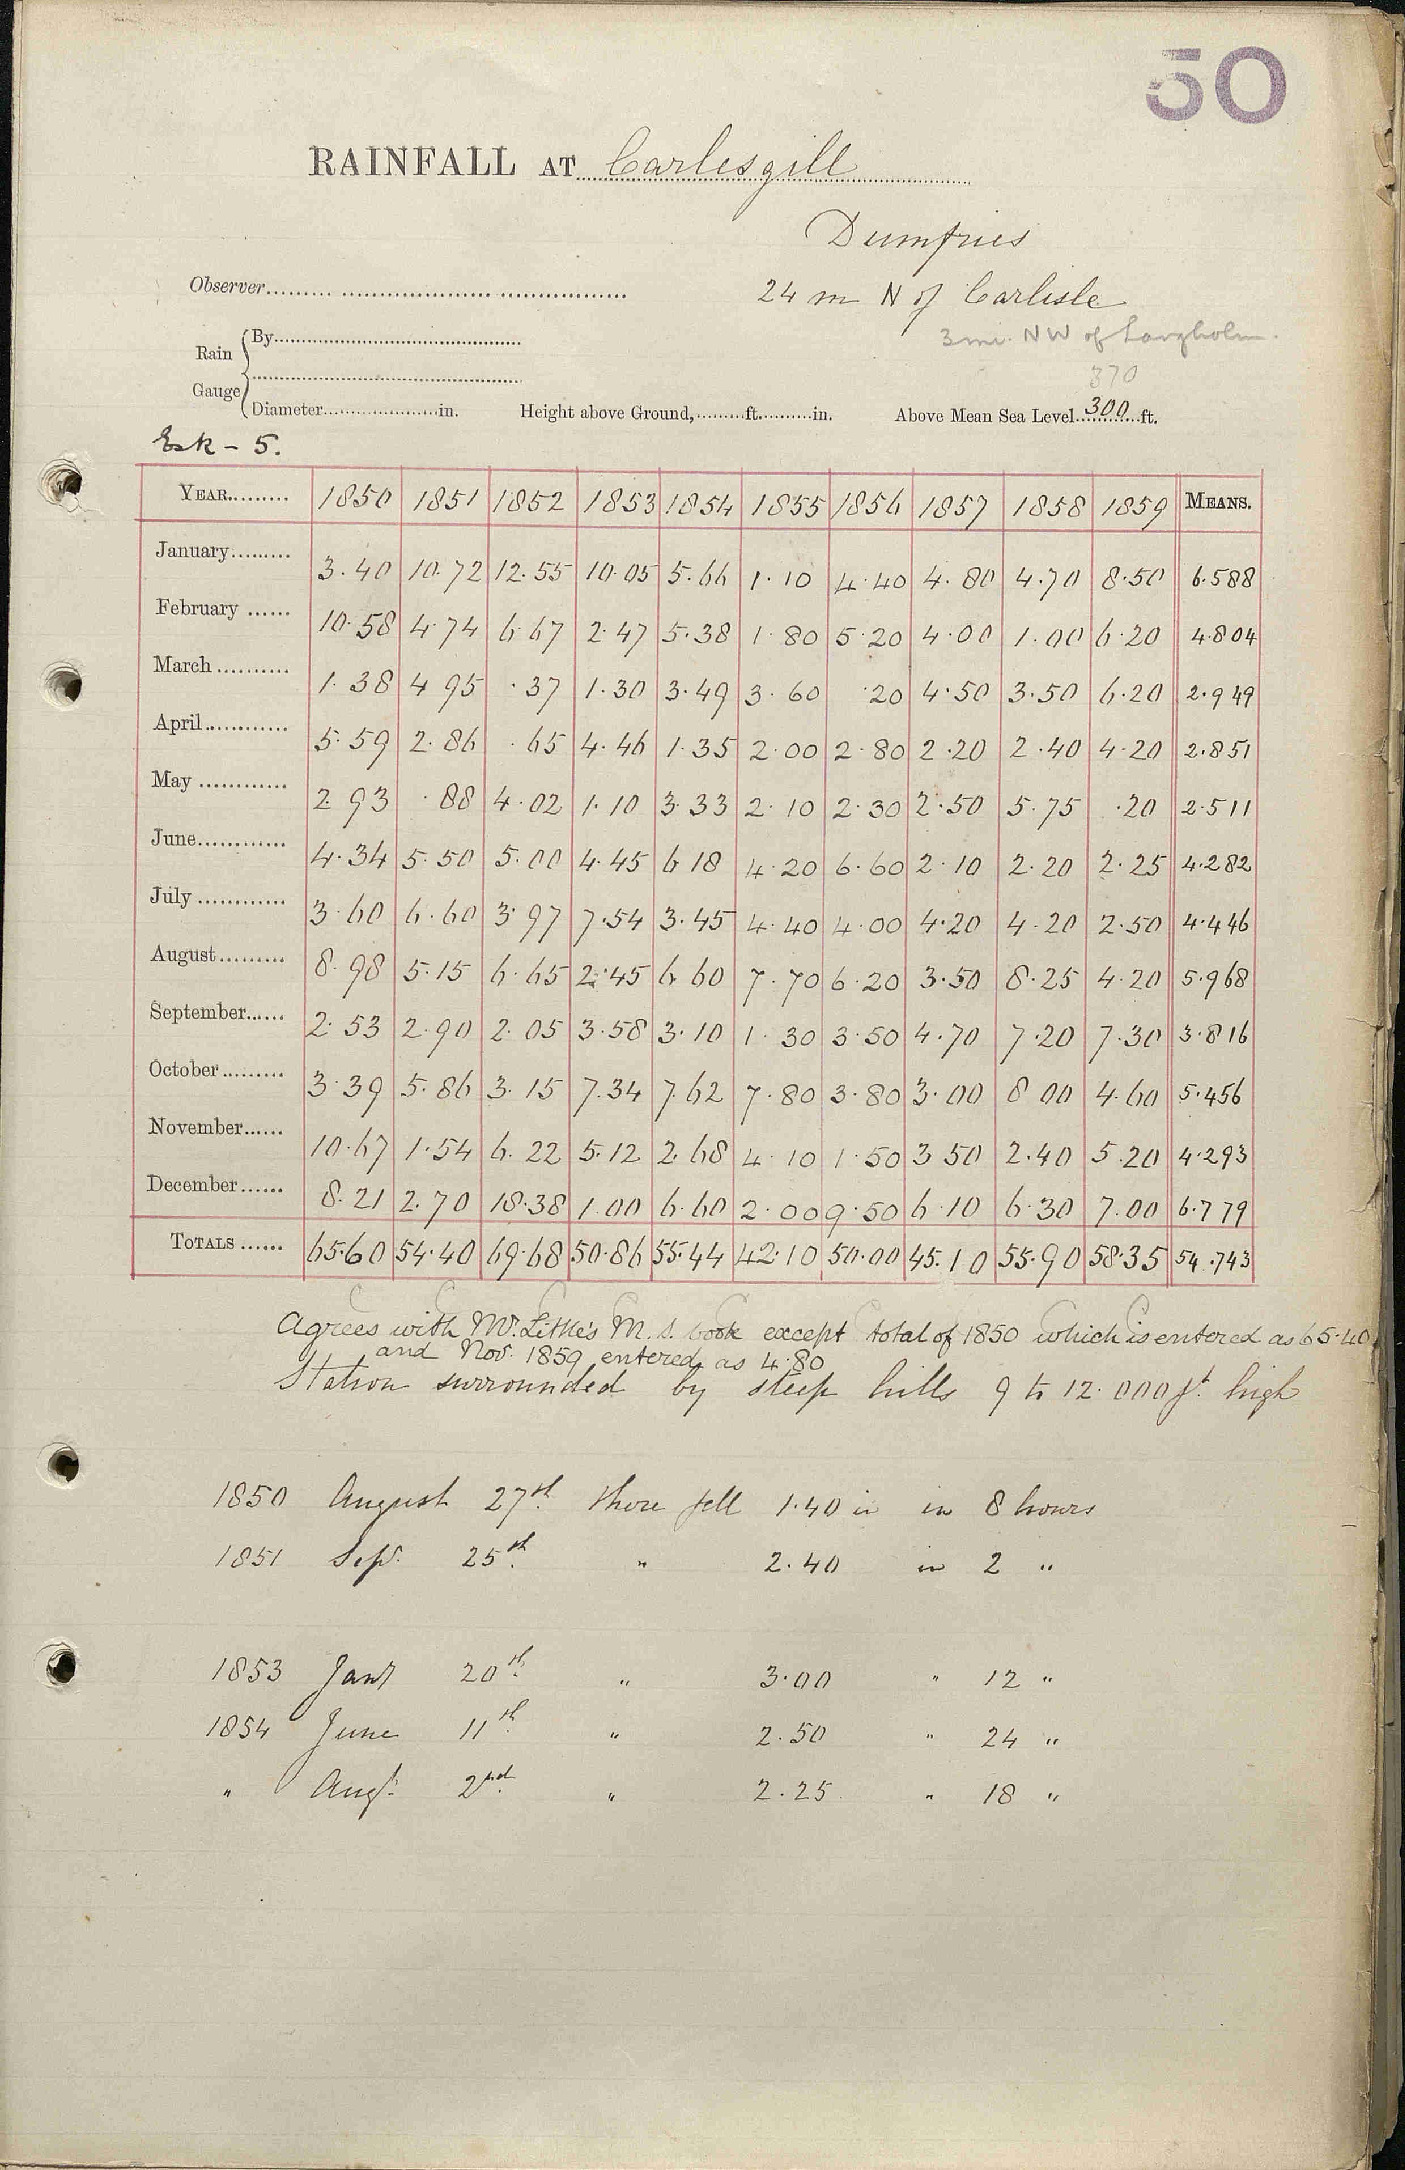 50
RAINFALL AT Carlesgill
Dumfries
Observer
24 m N of Carlisle
3 mi. NW of Langholm.
Rain Gauge { By
370
Diameter in. Height above Ground, ft. in. Above Mean Sea Level 300 ft.
Esk - 5.
YEAR 1850 1851 1852 1853 1854 1855 1856 1857 1858 1859 MEANS.
January 3.40 10.72 12.55 10.05 5.66 1.10 4.40 4.80 4.70 8.50 6.588
February 10.58 4.74 6.67 2.47 5.38 1.80 5.20 4.00 1.00 6.20 4.804
March 1.38 4 95 .37 1.30 3.49 3.60 .20 4.50 3.50 6.20 2.949
April 5.59 2.86 .65 4.46 1.35 2.00 2.80 2.20 2.40 4.20 2.851
May 2.93 .88 4.02 1.10 3.33 2.10 2.30 2.50 5.75 .20 2.511
June 4.34 5.50 5.00 4.45 6 18 4.20 6.60 2.10 2.20 2.25 4.282
July 3.60 6.60 3.97 7.54 3.45 4.40 4.00 4.20 4.20 2.50 4.446
August 8.98 5.15 6.65 2.45 6 60 7.70 6.20 3.50 8.25 4.20 5.968
September 2.53 2.90 2.05 3.58 3.10 1.30 3.50 4.70 7.20 7.30 3.816
October 3.39 5.86 3.15 7.34 7.62 7.80 3.80 3.00 8 00 4.60 5.456
November 10.67 1.54 6.22 5.12 2.68 4.10 1.50 3 50 2.40 5.20 4.293
December 8.21 2.70 18.38 1.00 6.60 2.00 9.50 6.10 6.30 7.00 6.779
TOTALS 65.60 54.40 69.68 50.86 55.44 42.10 50.00 45.10 55.90 58.35 54.743
Agrees with Mr. Little's M.S. book except total of 1850 which is entered as 65.40
and Nov. 1859 entered as 4.80
Station surrounded by steep hills 9 to 12.000 ft high
1850 August 27th. there fell 1.40 in in 8 hours
1851 Sepr. 25th. " 2.40 in 2 "
1853 Jany 20th. " 3.00 " 12 "
1854 June 11th. " 2.50 " 24 "
" Augt. 2nd. " 2.25 " 18 "